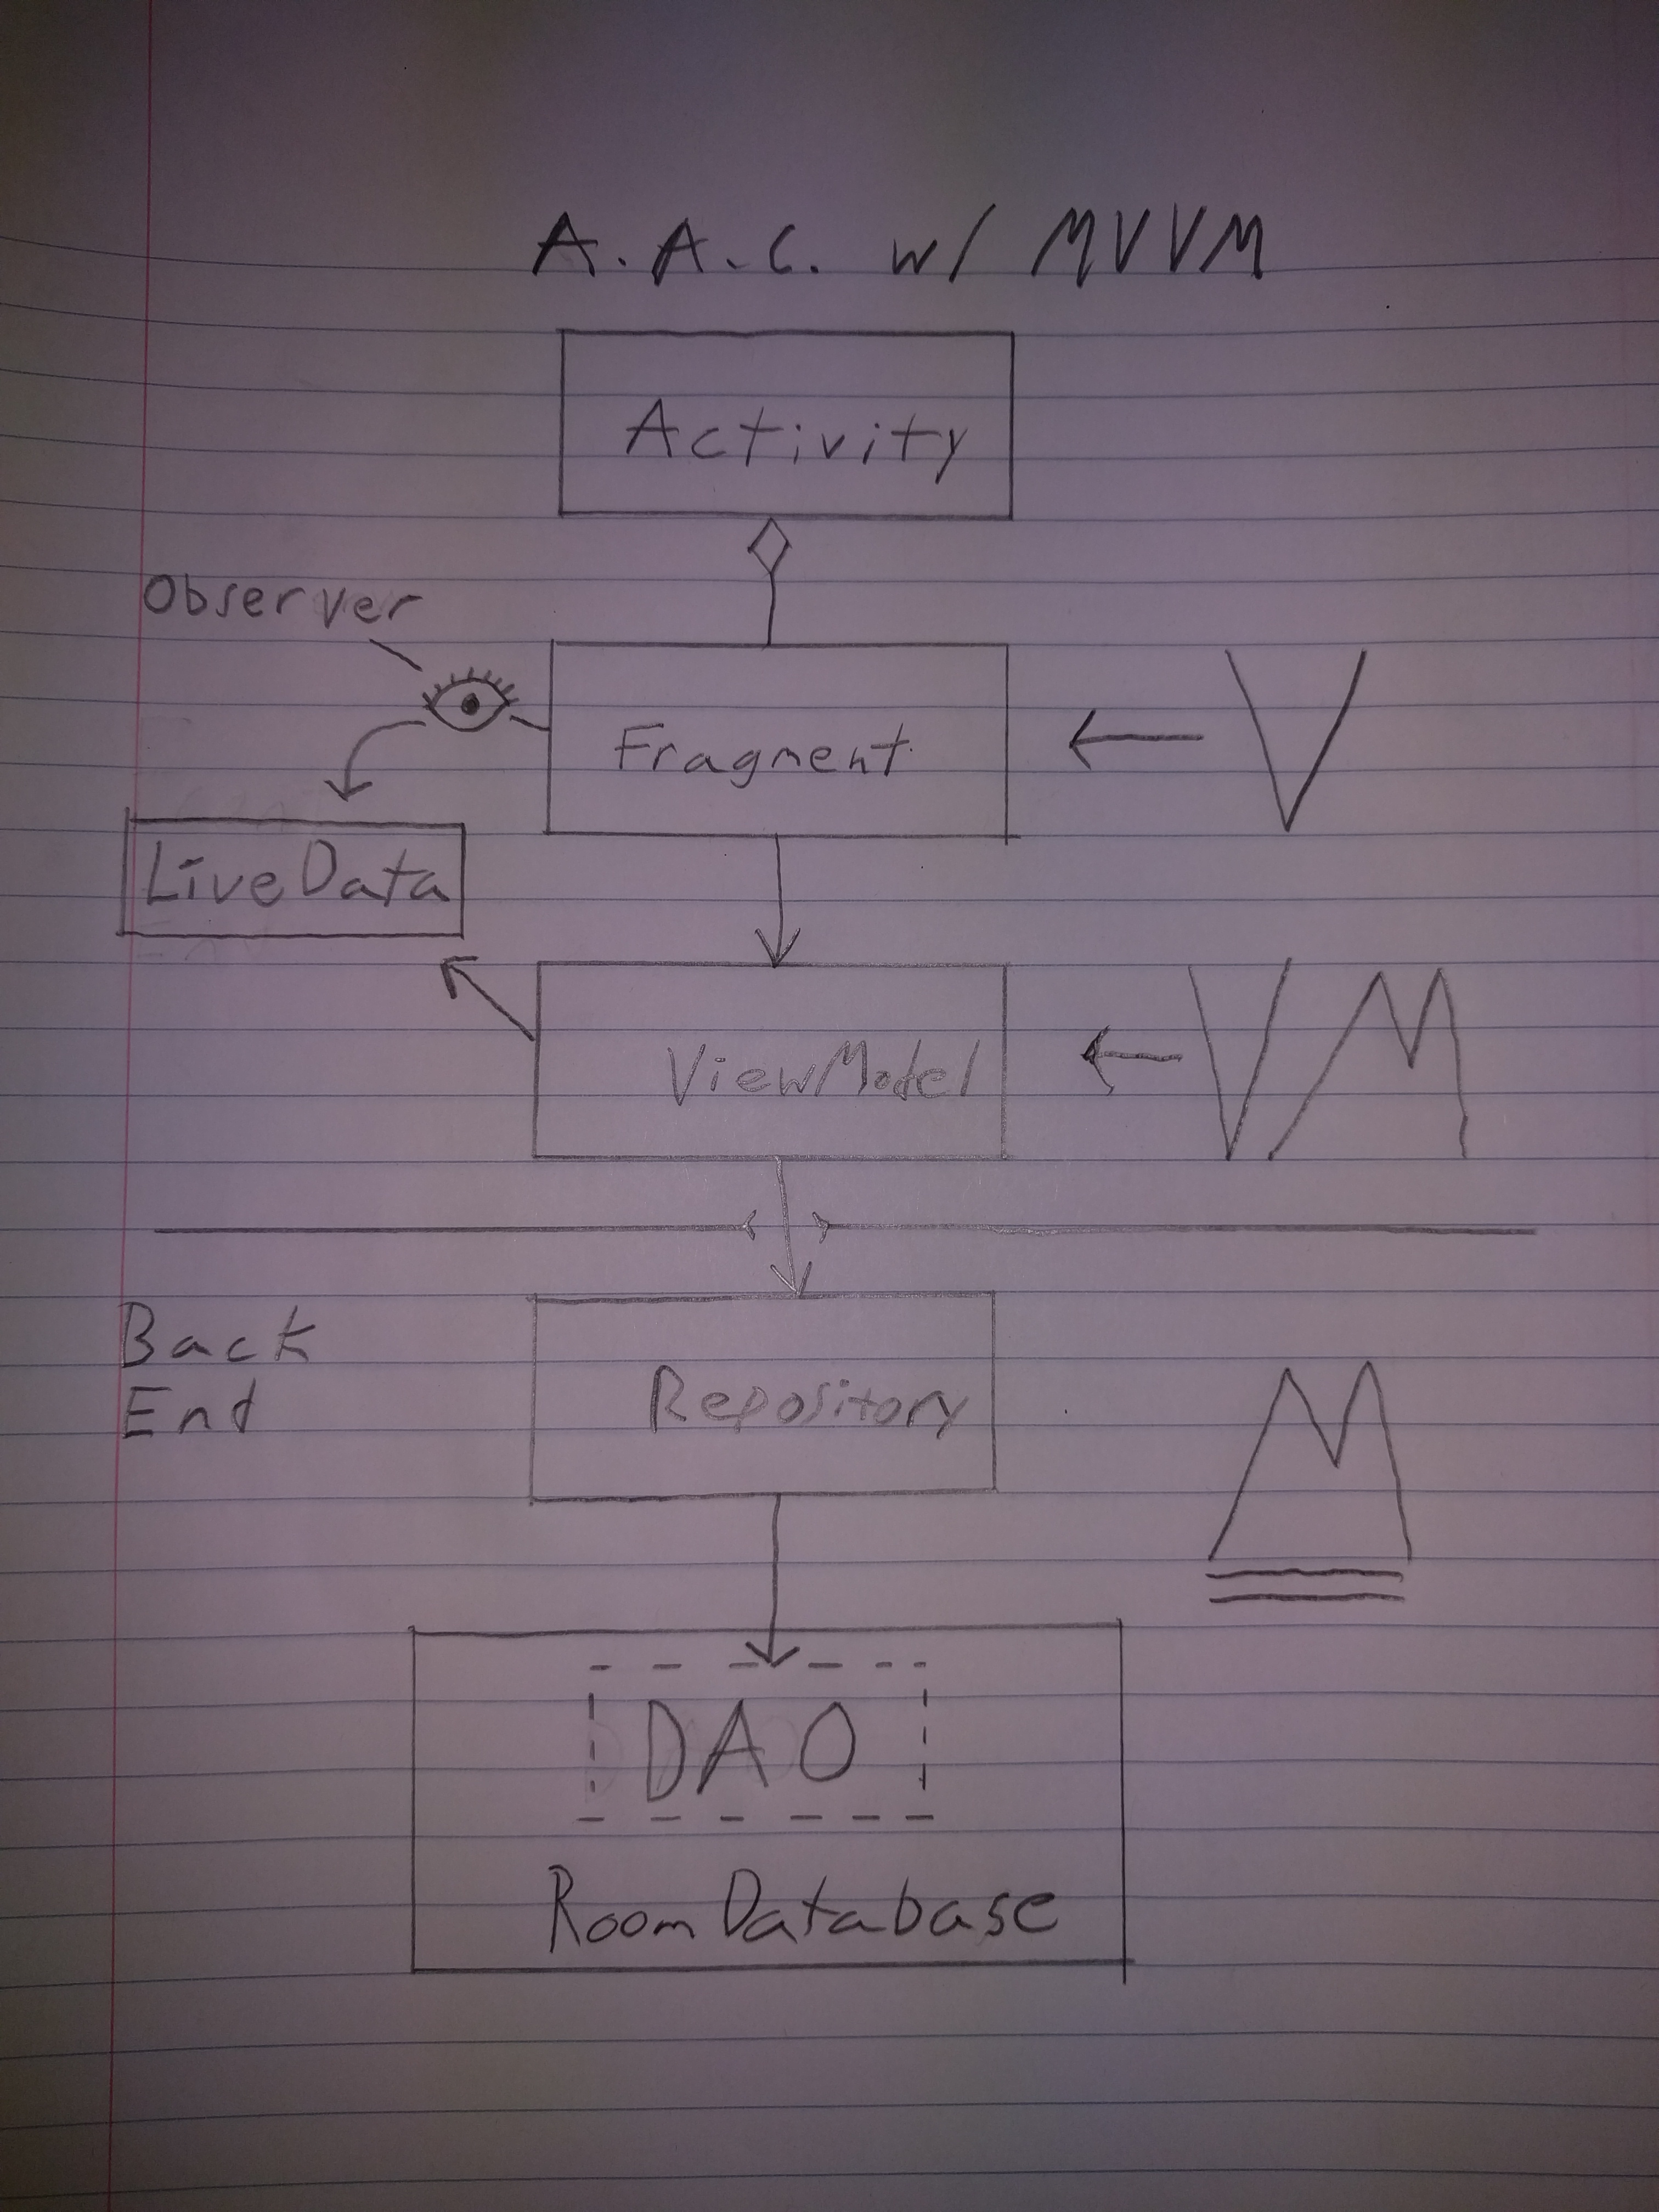 A.A.C. w/ MVVM
Activity
Observer
Fragment
V
LiveData
ViewModel
VM
Back
End
Repository
M
DAO
RoomDatabase